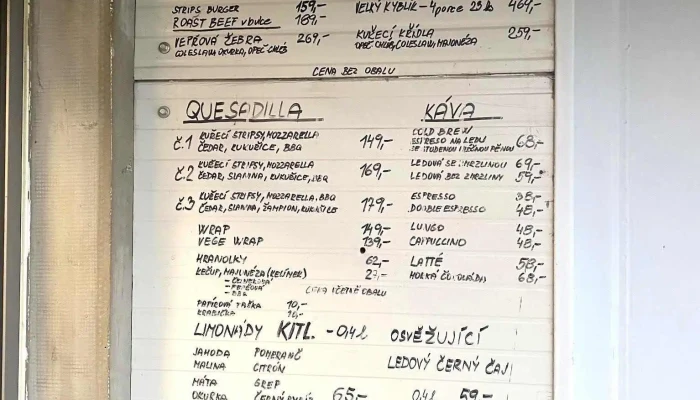 STRIPS BURGER 159,- VELKÝ KYBLÍK - 4 porce 25 ks 469,-
ROAST BEEF v bulce 189,-
VEPŘOVÁ ŽEBRA 269,- KUŘECÍ KŘÍDLA 259,-
COLESLAW, OKURKA, OPEČ CHLÉB OPEČ CHLÉB, COLESLAW, MAJONÉZA
CENA BEZ OBALU
QUESADILLA KÁVA
Č.1 KUŘECÍ STRIPSY, MOZZARELLA 149,-
ČEDAR, KUKUŘICE, BBQ
COLD BREW
ESPRESO NA LEDU 68,-
SE STUDENOU MLÉČNOU PĚNOU
Č.2 KUŘECÍ STRIPSY, MOZZARELLA 169,-
ČEDAR, SLANINA, KUKUŘICE, BBQ
LEDOVÁ SE ZMRZLINOU 69,-
LEDOVÁ BEZ ZMRZLINY 59,-
Č.3 KUŘECÍ STRIPSY, MOZZARELLA, BBQ 179,-
ČEDAR, SLANINA, ŽAMPION, KUKUŘICE
ESPRESSO 38,-
DOUBLE ESPRESSO 48,-
WRAP 149,- LUNGO 48,-
VEGE WRAP 139,- CAPPUCCINO 48,-
HRANOLKY 62,- LATTÉ 58,-
KEČUP, MAJONÉZA (KELÍMEK) HORKÁ ČOKOLÁDA 68,-
- ČESNEKOVÁ
- BBQ
CENA VČETNĚ OBALU
PAPÍROVÁ TAŠKA 10,-
KRABIČKA 10,-
LIMONÁDY KITL. - 0,4 l OSVĚŽUJÍCÍ
JAHODA POMERANČ LEDOVÝ ČERNÝ ČAJ
MALINA CITRÓN
MÁTA GREP
OKURKA ČERNÝ RYBÍZ 65,- 0,4 l 59,-